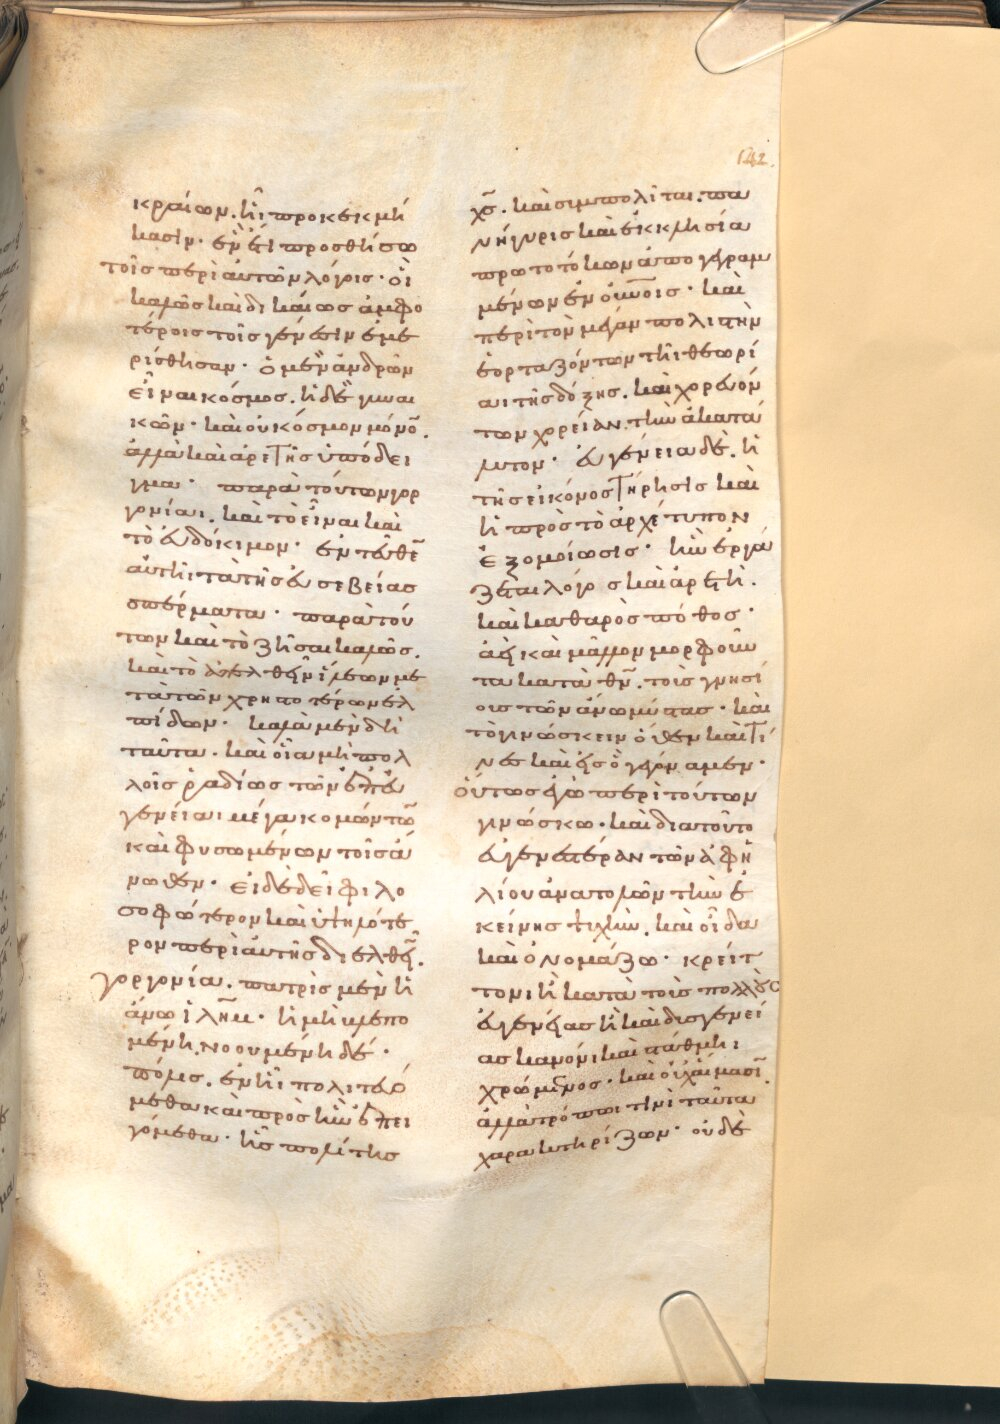 142
κραίων. ἢ προκεκμή
κασιν· ἓν ἔτι προσθήσω
τοῖς περὶ αὐτῶν λόγοις· ὅτι
καλῶς καὶ δικαίως ἀμφο
τέροις τοῖς γένεσιν ἐμε
ρίσθησαν· ὁ μὲν ἀνδρῶν
εἶναι κόσμος. ἡ δὲ γυναι
κῶν· καὶ οὐ κόσμον μόνο̅.
ἀλλὰ καὶ ἀρετῆς ὑπόδει
γμα· παρὰ τούτων γορ
γονίαι. καὶ τὸ εἶναι καὶ
τὸ εὐδόκιμον· ἐντεῦθε̅
αὐτῆι τὰ τῆς εὐσεβείας
σπέρματα· παρὰ τού
των καὶ τὸ ζῆσαι καλῶς.
καὶ τὸ ἀπελθεῖν ἵλεων με
τὰ τῶν χρηστοτέρων ἐλ
πίδων· καλὰ μὲν δὴ
ταῦτα· καὶ οἷα μὴ πολ
λοῖς ῥαδίως τῶν ἐπ' εὐ
γενείαι μέγα κομώντω̅
καὶ φυσωμένων τοῖς ἄ
νωθεν· εἰ δὲ δεῖ φιλο
σοφώτερον καὶ ὑψηλότε
ρον περὶ αὐτῆς διελθεῖ̅.
γοργονία. πατρὶς μὲν ἡ
ἄνω ἱλῆμ· ἡ μὴ βλεπο
μένη. νοουμένη δέ·
πόλις. ἐν ἧι πολιτευό
μεθα καὶ πρὸς ἣν ἐπει
γόμεθα· ἧς πολίτης
χς̅. καὶ συμπολῖται. πα
νήγυρις καὶ ἐκκλησία
πρωτοτόκων ἀπογεγραμ
μένων ἐν οὐνοις· καὶ
περὶ τὸν μέγαν πολιστὴν
ἑορταζόντων τῆι θεωρί
αι τῆς δόξης. καὶ χορευόν
των χορείαν. τὴν ἀκατά
λυτον· εὐγένεια δὲ. ἡ
τῆς εἰκόνος τήρησις καὶ
ἡ πρὸς τὸ ἀρχέτυπον
ἐξομοίωσις· ἣν ἐργά
ζεται λόγος καὶ ἀρετὴ.
καὶ καθαρὸς πόθος·
ἀεὶ καὶ μᾶλλον μορφοῦν
τα κατὰ θν̅. τοὺς γνησί
ους τῶν ἄνω μύστας· καὶ
τὸ γινώσκειν ὅθεν καὶ τί
νες καὶ εἰς ὃ γεγόναμεν·
Οὕτως ἐγὼ περὶ τούτων
γινώσκω· καὶ διὰ τοῦτο
εὐγενεστέραν τῶν ἀφ' ἡ
λίου ἀνατολῶν τὴν ἐ
κείνης ψυχὴν. καὶ οἶδα
καὶ ὀνομάζω· κρείτ
τονι ἢ κατὰ τοὺς πολλοὺς
εὐγενείας ἢ καὶ δυσγενεί
ας κανόνι καὶ στάθμηι
χρώμενος· καὶ οὐχ αἵμασι̅.
ἀλλὰ τρόπωι τινὶ ταῦτα
χαρακτηρίζων· οὐδὲ